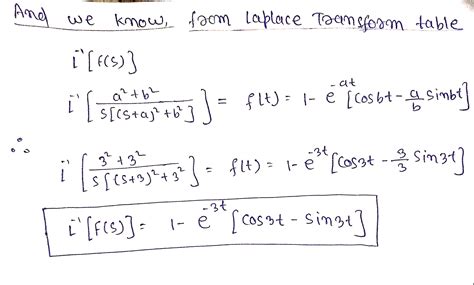 And we know, from laplace Transform table
L⁻¹[F(s)]
L⁻¹[(a²+b²)/(s[(s+a)²+b²])] = f(t) = 1- e^(-at) [cosbt - a/b sinbt]
∴ L⁻¹[(3²+3²)/(s[(s+3)²+3²])] = f(t) = 1- e^(-3t) [cos3t - 3/3 sin3t]
L⁻¹[F(s)] = 1- e^(-3t) [cos3t - sin3t]